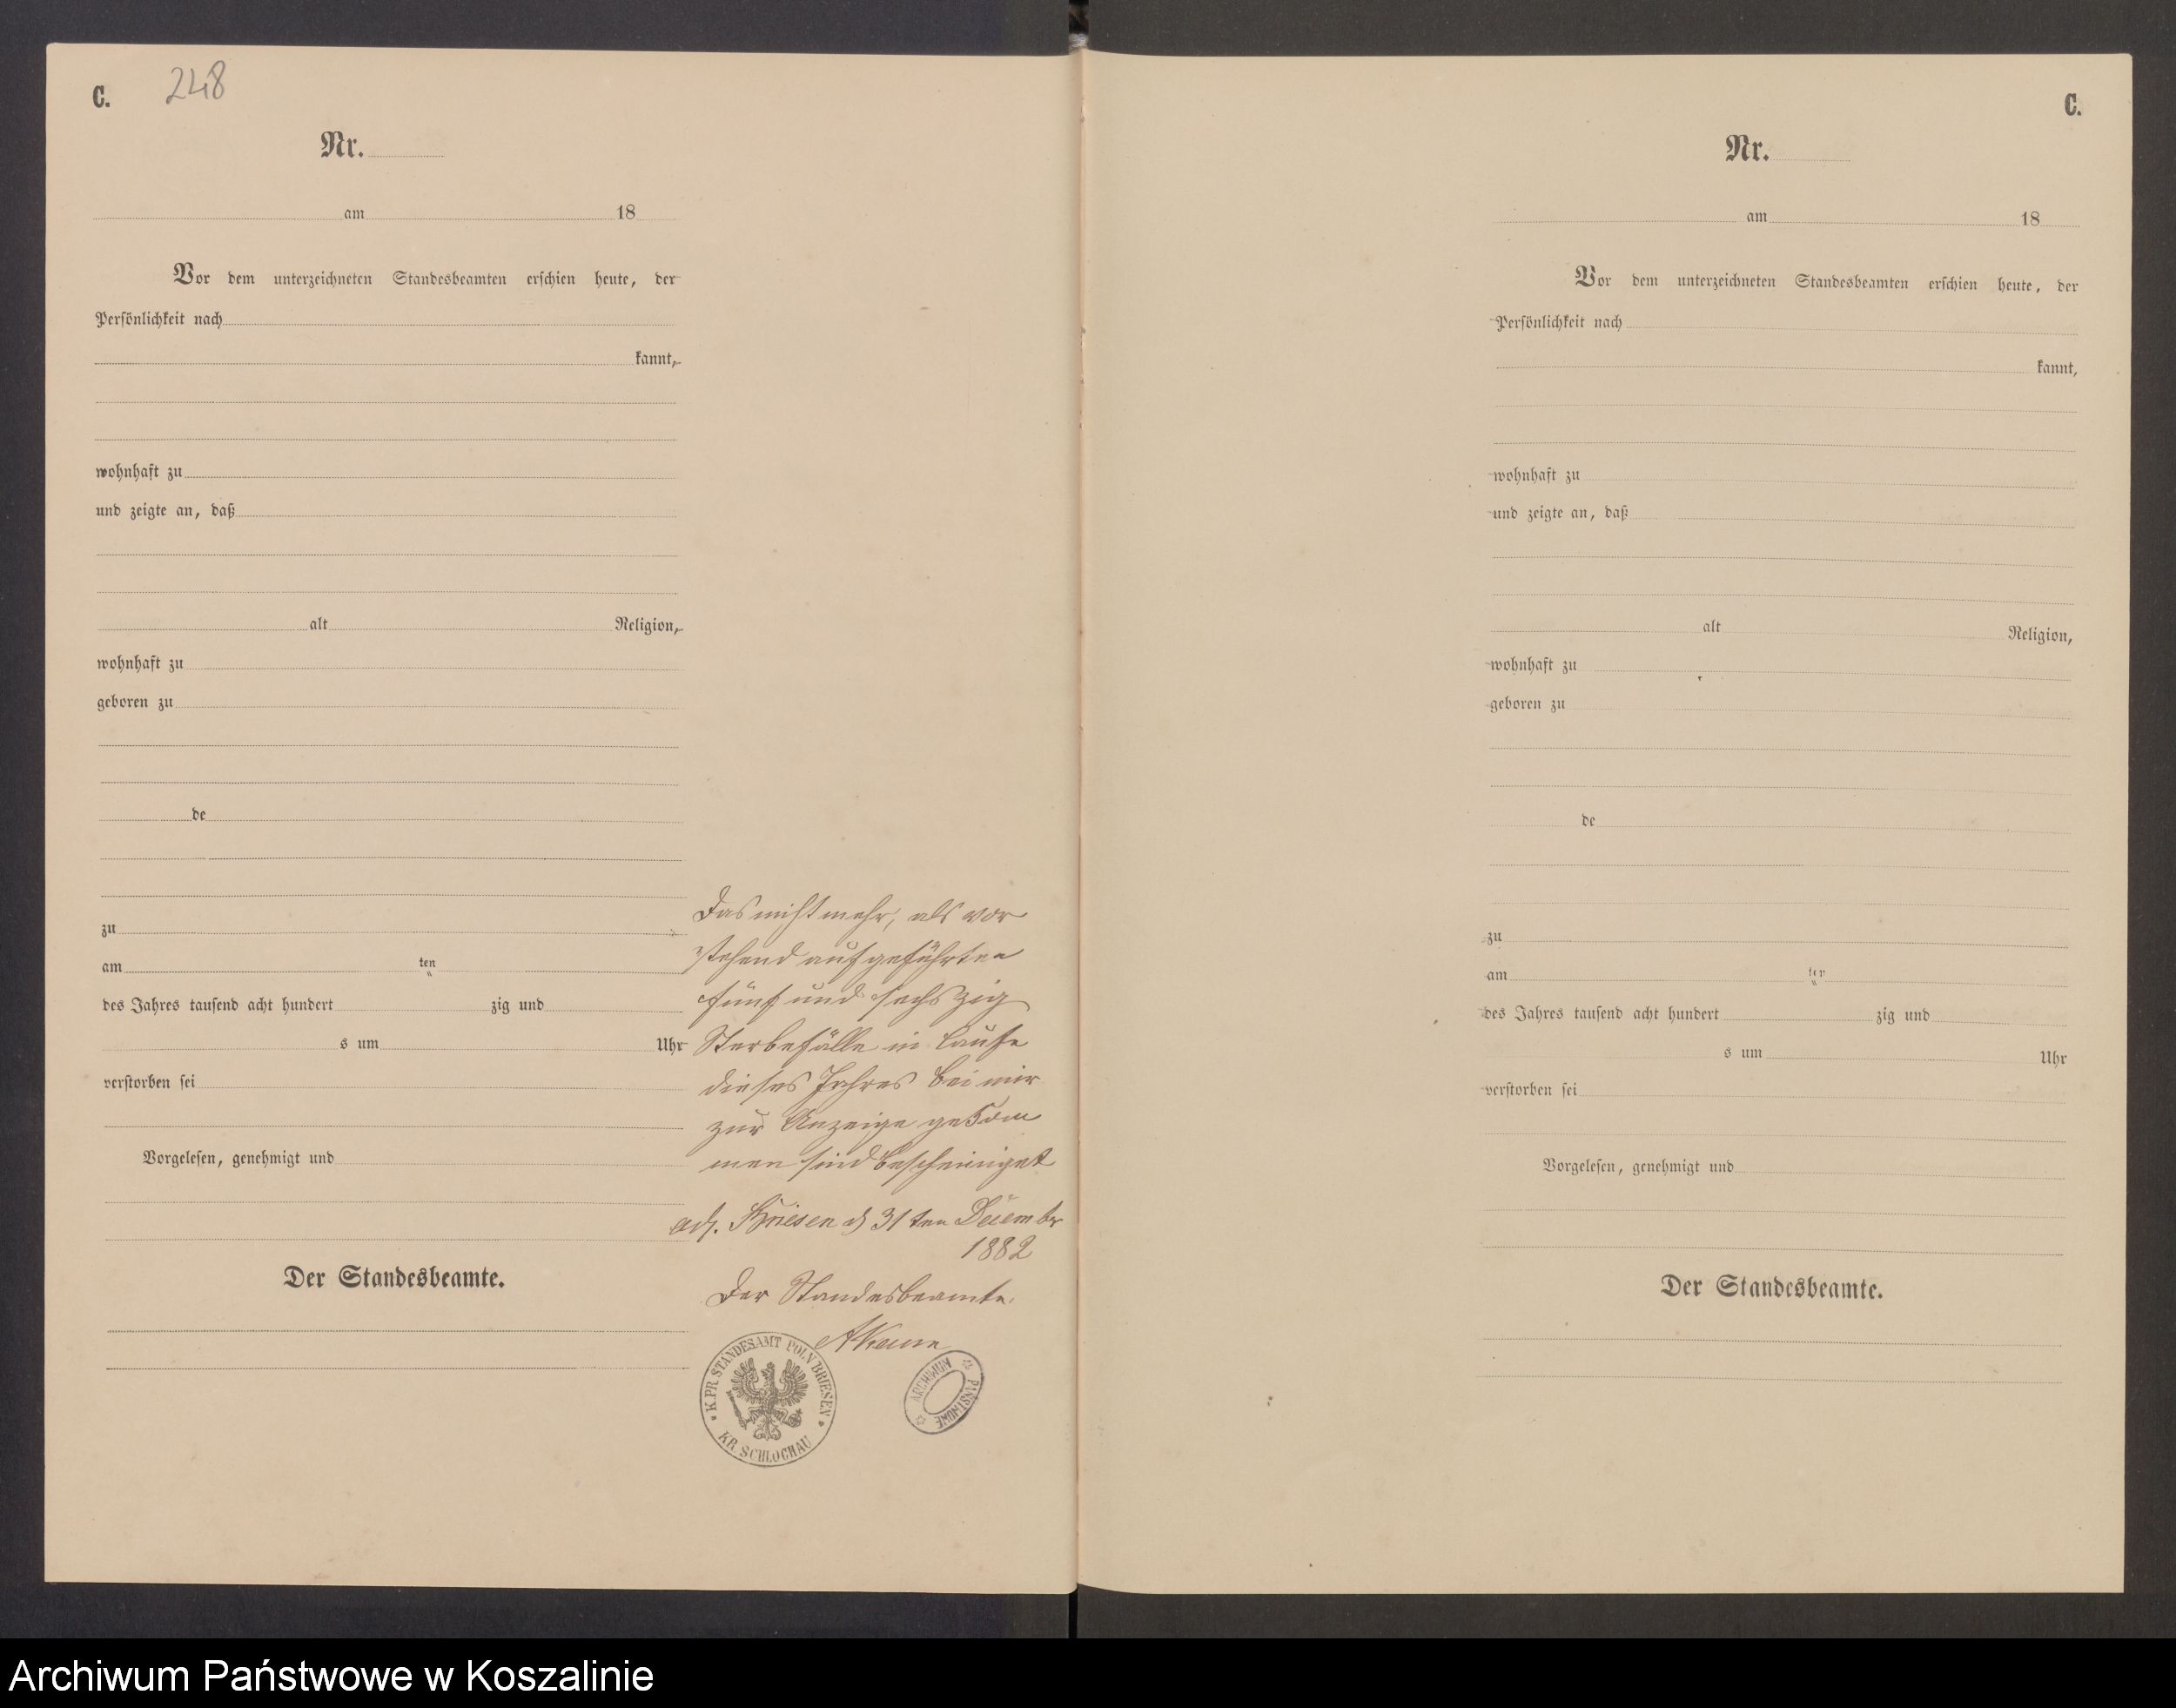 C.
248
Nr.
am 18
Vor dem unterzeichneten Standesbeamten erschien heute, der
Persönlichkeit nach
kannt,
wohnhaft zu
und zeigte an, daß
alt Religion,
wohnhaft zu
geboren zu
de
zu
am ten
des Jahres tausend acht hundert zig und
s um Uhr
verstorben sei
Vorgelesen, genehmigt und
Der Standesbeamte.
Das nicht mehr, als vor
stehend aufgeführten
fünf und sechszig
Sterbefälle in Laufe
dieses Jahres bei mir
zur Anzeige gekom
men sind bescheiniget
Briesen d 31 ten Dezember
1882
Der Standesbeamte.
K. PR. STANDESAMT POLN BRIESEN
KR. SCHLOCHAU
ARCHIWUM PAŃSTWOWE
C.
Nr.
am 18
Vor dem unterzeichneten Standesbeamten erschien heute, der
Persönlichkeit nach
kannt,
wohnhaft zu
und zeigte an, daß
alt Religion,
wohnhaft zu
geboren zu
de
zu
am ten
des Jahres tausend acht hundert zig und
s um Uhr
verstorben sei
Vorgelesen, genehmigt und
Der Standesbeamte.
Archiwum Państwowe w Koszalinie